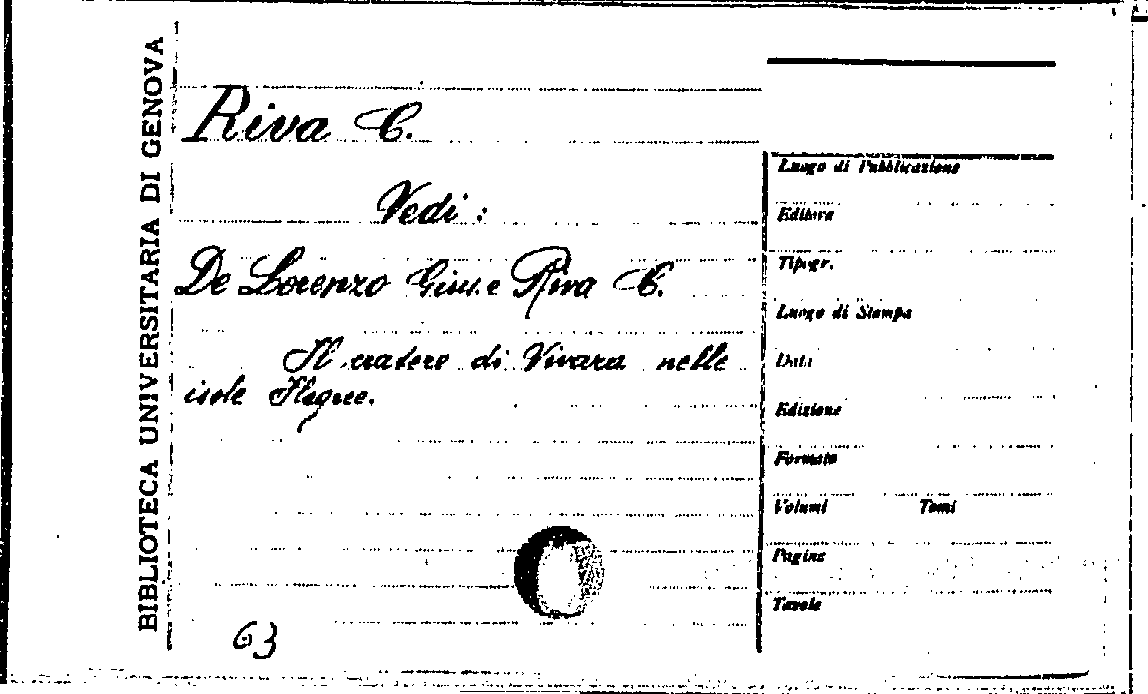 BIBLIOTECA UNIVERSITARIA DI GENOVA
Riva C.
Vedi :
De Lorenzo Gius. e Riva C.
Il cratere di Vivara nelle
isole Flegree.
63
Luogo di Pubblicazione
Editore
Tipogr.
Luogo di Stampa
Data
Edizione
Formato
Volumi Tomi
Pagine
Tavole